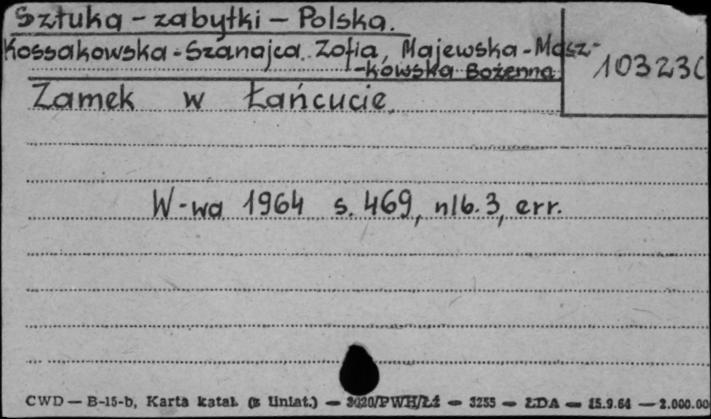 Sztuka - zabytki - Polska.
Kossakowska-Szanajca Zofia, Majewska-Masz-
-kowska Bożenna
103230
Zamek w Łańcucie
W-wa 1964 s. 469, nlb. 3, err.
CWD — B-15-b, Karta katal. (z liniat.) — 3020/PWH/Łż — 3255 — ŁDA — 15.9.64 — 2.000.00